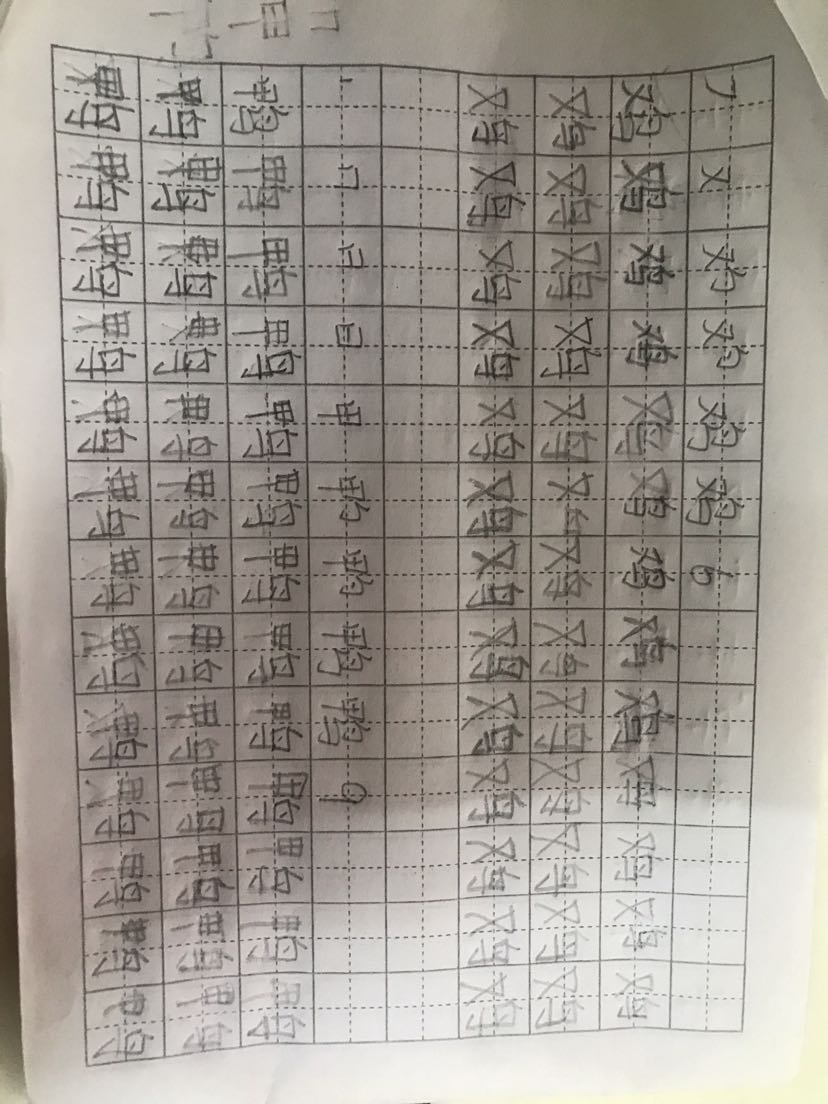 又 鸡
鸡 鸡 鸡 鸡 鸡 鸡 鸡 鸡 鸡 鸡 鸡 鸡 鸡
鸡 鸡 鸡 鸡 鸡 鸡 鸡 鸡 鸡 鸡 鸡 鸡 鸡
鸡 鸡 鸡 鸡 鸡 鸡 鸡 鸡 鸡 鸡 鸡 鸡 鸡
丨 日 甲 鸭
鸭 鸭 鸭 鸭 鸭 鸭 鸭 鸭 鸭 鸭 鸭 鸭 鸭
鸭 鸭 鸭 鸭 鸭 鸭 鸭 鸭 鸭 鸭 鸭 鸭 鸭
鸭 鸭 鸭 鸭 鸭 鸭 鸭 鸭 鸭 鸭 鸭 鸭 鸭